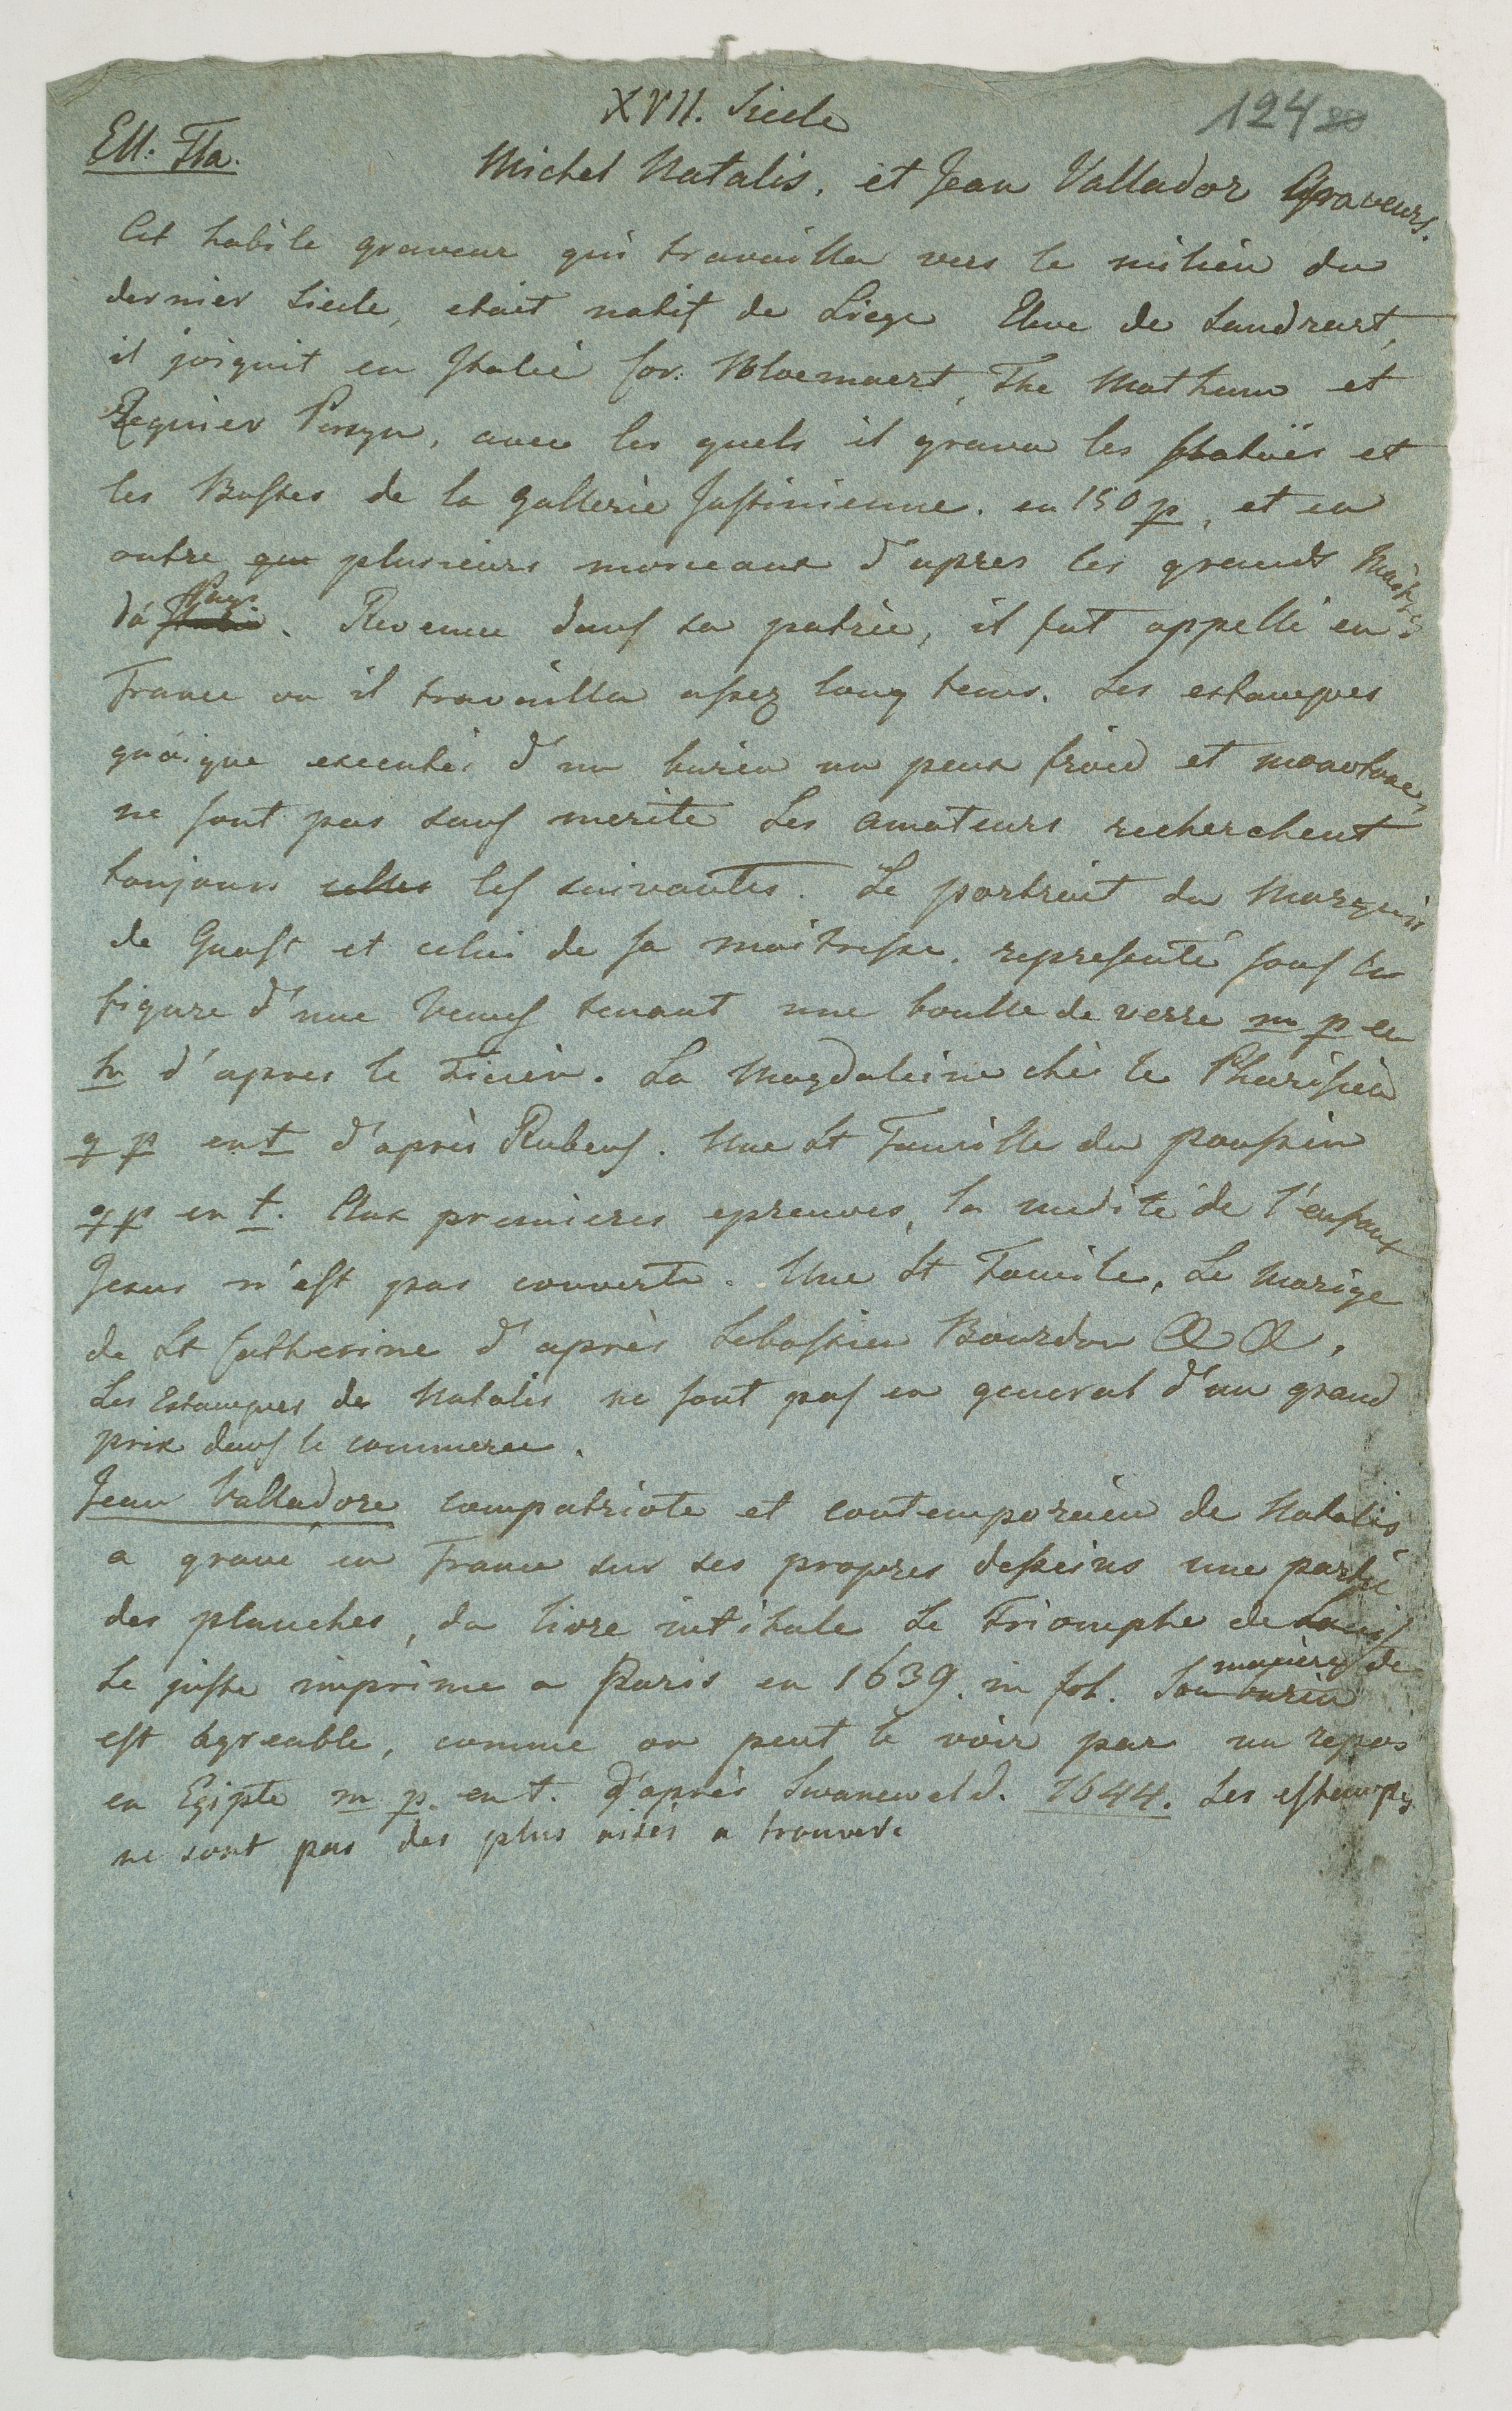 XVII. Siecle
124
Ell: Fla.
Michel Natalis, et Jean Vallador Graveurs.
Cet habile graveur qui travailla vers le milieu du
dernier Siecle, etait natif de Liege Eleve de Sandrart,
il joignit en Italie Cor: Bloemaert, The Matham et
Regnier Persyn, avec les quels il grava les statües et
les Bustes de la gallerie Justinienne. en 150 p, et en
outre que plusieurs morceaux d'apres les grands Maitres
du Pays Italie. Revenue dans sa patrie, il fut appellé en
France ou il travailla assez long tems. Ses estampes
quoique executés d'un burin un peux froid et monotone,
ne sont pas sans merite Les amateurs recherchent
toujours celles les suivantes. Le portrait du Marquis
de Guast et celui de sa maitresse. representé sous la
figure d'une Venus tenant une boulle de verre m p en
h d'apres le Ticien. La Magdaleine chés le Pharisien
g p en t d'après Rubens. Une St Famille du Poussin
g p en t. Aux premieres epreuves, la nudité de l'enfant
Jesus n'est pas couverte. Une St Famile, Le Marige
de St Catherine d'après Sebastien Bourdon
Les Estampes de Natalis ne sont pas en general d'un grand
prix dans le commerce.
Jean Valladore compatriote et contemporain de Natalis
a gravé en France sur ses propres desseins une partie
des planches, du livre intitule Le Triomphe de Louis
Le juste imprime a Paris en 1639. in fol. Son burin maniere de
est agreable, comme on peut le voir par un repos
en Egipte m p. en t. d'après Swaneveld. 1644. Ses estampes
ne sont pas des plus aisés a trouver.